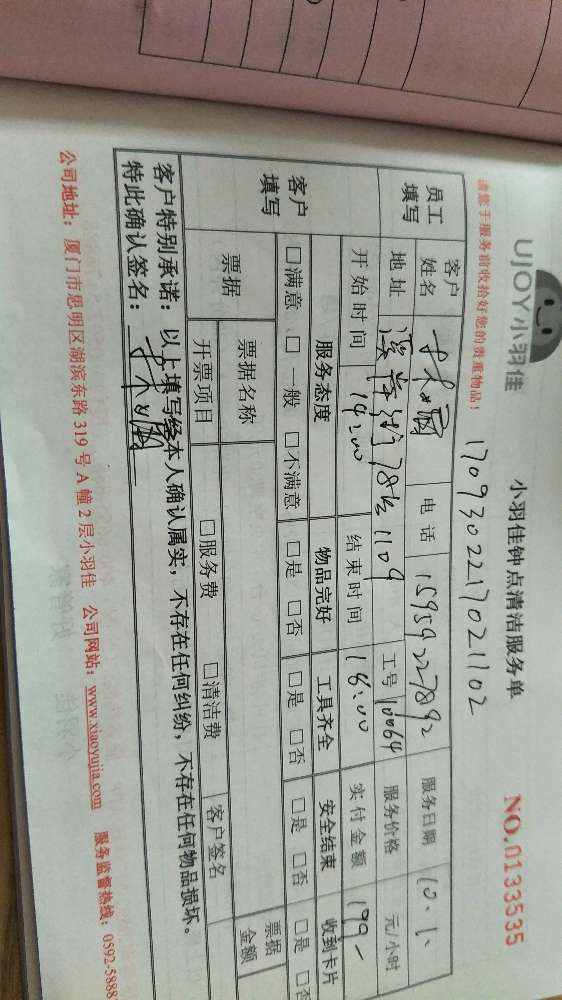 UJOY小羽佳
小羽佳钟点清洁服务单
NO.0133535
请您于服务前收拾好您的贵重物品！
1709302217021102
员工填写
客户姓名
电话 15959227892
服务日期 10.1
地址 1109
工号 10064
服务价格 元/小时
开始时间 14:00
结束时间 18:00
实付金额 199-
客户填写
服务态度 物品完好 工具齐全 安全结束 收到卡片
□满意、□ 一般 □不满意 □是 □否 □是 □否 □是 □否 □是 □否
票据 票据名称 票据金额
开票项目 □服务费 □清洁费 客户签名
客户特别承诺：以上填写经本人确认属实，不存在任何纠纷，不存在任何物品损坏。
特此确认签名：
公司地址：厦门市思明区湖滨东路 319 号 A 幢 2 层小羽佳 公司网站：www.xiaoyujia.com 服务监督热线：0592-5888